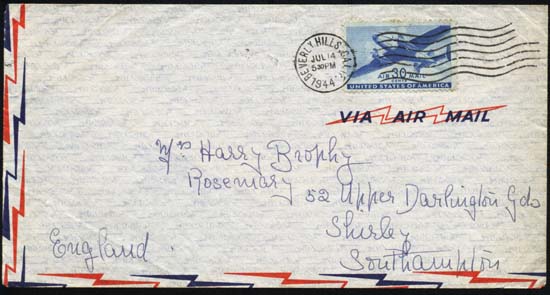 BEVERLY HILLS, CAL.
JUL 14
5:30PM
1944
30
AIR MAIL
CENTS
UNITED STATES OF AMERICA
VIA AIR MAIL
Mrs Harry Brophy
Rosemary 52 Upper Darlington Gdns
Shirley
England Southampton